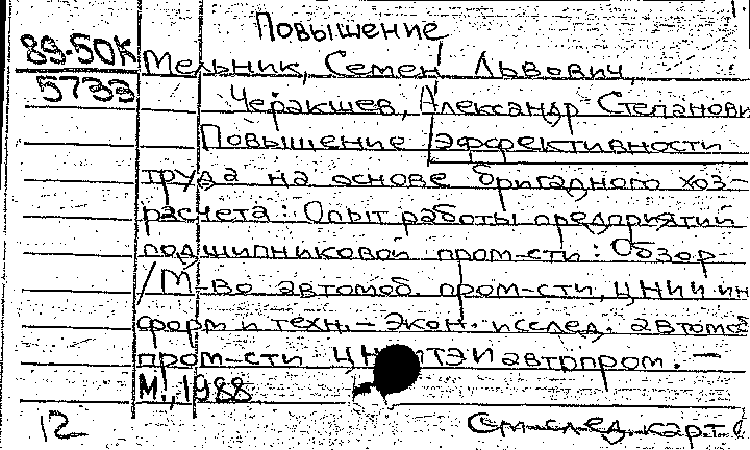 Повышение
89-50К
5733
Мельник, Семен Львович,
Черакшев, Александр Степанови
Повышение эффективности
труда на основе бригадного хоз-
расчета: Опыт работы предприятий
подшипниковой пром-сти: Обзор
/М-во автомоб. пром-сти, ЦНИИ ин
форм и техн.-экон. исслед. автомоб
пром-сти ЦН ТЭИавтопром. —
М., 1988
12
См след. карт.